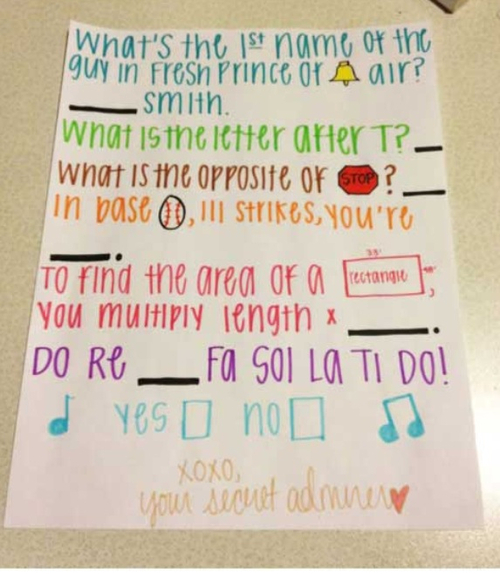 What's the 1st name of the
guy in Fresh Prince of air?
____ smith.
What is the letter after T? __
What is the opposite of STOP ? ___
In base , III strikes, you're
____.
To find the area of a rectangle,
you multiply length x ____.
DO Re ____ Fa SOl La Ti DO!
yes no
XOXO,
your secret admirer